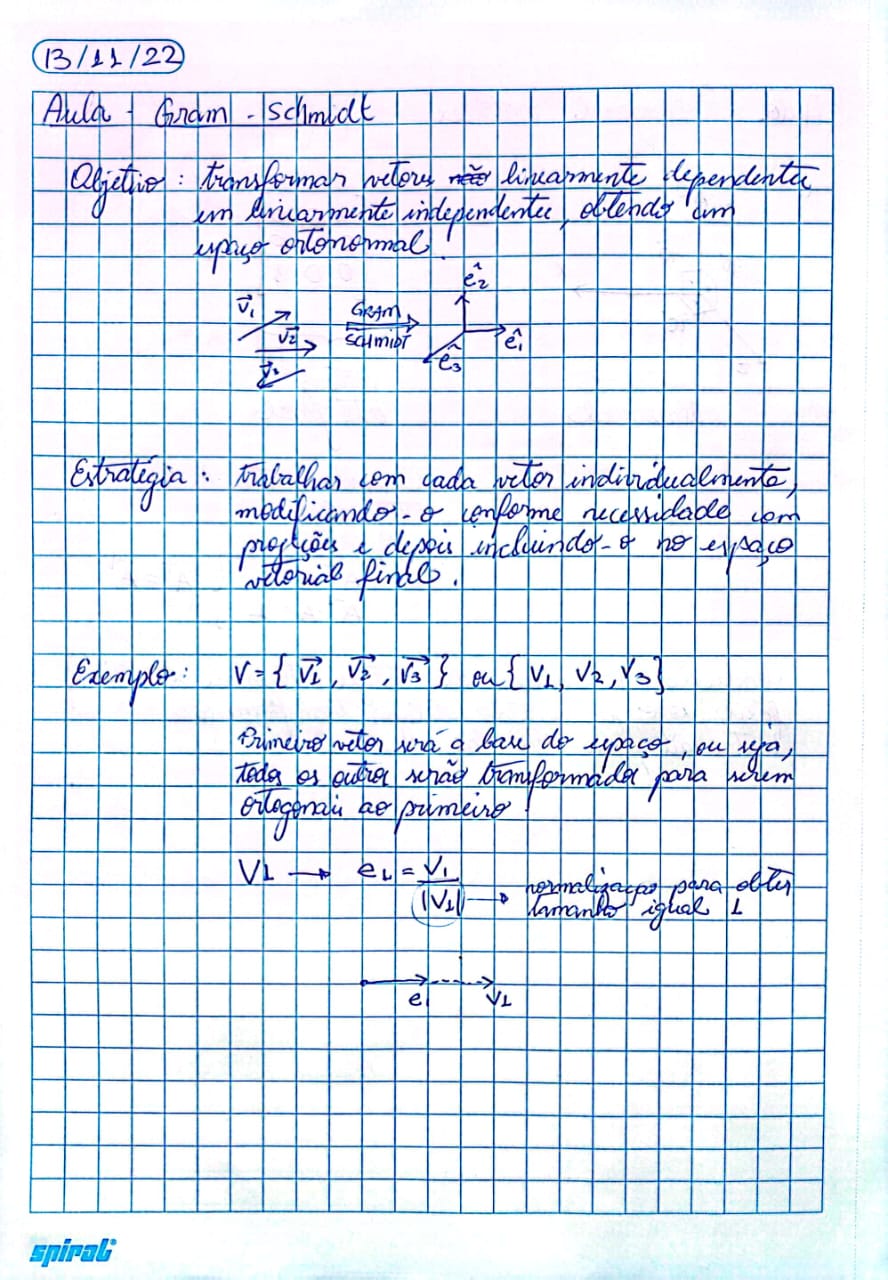 13/11/22
Aula - Gram - Schmidt
Objetivo: transformar vetores não linearmente dependentes
em linearmente independentes, obtendo um
espaço ortonormal!
v⃗₁
v⃗₂
v⃗₃
GRAM
SCHMIDT
ê₂
ê₁
ê₃
Estratégia: trabalhar com cada vetor individualmente,
modificando-o conforme necessidade com
projeções e depois incluindo-o no espaço
vetorial final.
Exemplo: V = { v⃗1, v⃗2, v⃗3 } ou { V1, V2, V3 }
Primeiro vetor será a base do espaço, ou seja,
todos os outros serão transformados para serem
ortogonais ao primeiro!
V1 → e1 = V1
|V1| → normalização para obter
tamanho igual 1
e1 V1
spiral